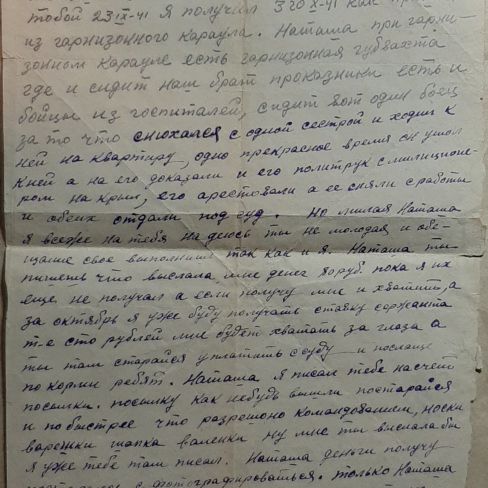 тобой 23 IX-41 Я получил 3 20 X-41 как
из гарнизонного караула. Наташа при гарни-
зонном карауле есть гарнизонная губвахта
где и сидит наш брат проказники есть и
бойцы из госпиталей, сидит вот один боец
за то что снюхался с одной сестрой и ходил к
ней на квартиру, одно прекрасное время он ушол
к ней а на его доказали и его политрук с милиционе-
ром на крыл, его арестовали а ее сняли с работы
и обеих отдали под суд. Но милая Наташа
я всеже на тебя на деюсь ты не молодая и обе-
щание свое выполнишь так как и я. Наташа ты
пишешь что выслала мне денег руб. пока я их
еще не получал а если получу мне и хватит, а
за октябрь я уже буду получать ставку сержанта
т-е сто рублей мне будет хватать за глаза а
ты там старайся уплатить ссуду и послаще
по корми ребят. Наташа я писал тебе насчет
посылки. посылку как нибудь вышли постарайся
и по быстрее что разрешоно командованием, носки
варешки шапка валенки ну мне ты выслала бы
я уже тебе там писал. Наташа деньги получу
с фотографироваться. только Наташа